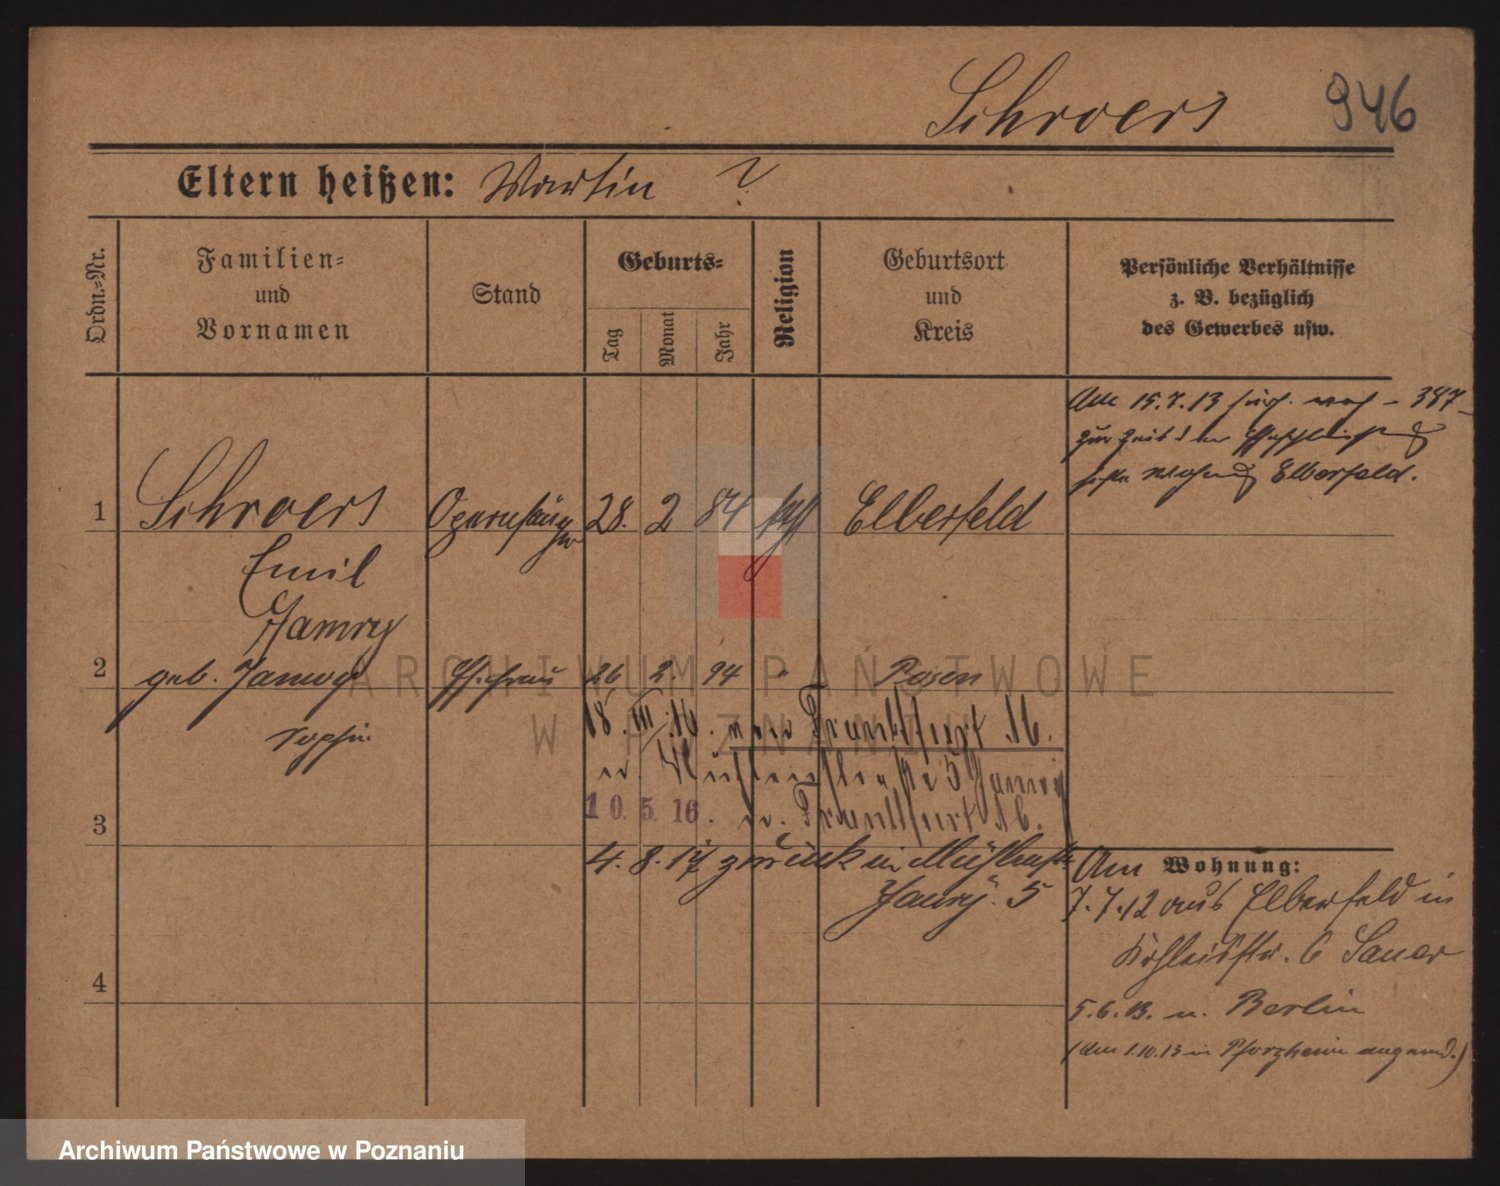 Schroers 946
Eltern heißen: Martin ?
Ordn.=Nr.
Familien=
und
Vornamen
Stand
Geburts=
Tag
Monat
Jahr
Religion
Geburtsort
und
Kreis
Persönliche Verhältnisse
z. B. bezüglich
des Gewerbes usw.
Am 15.7.13 - 387
zur Zeit der Eheschließung
Elberfeld.
1 Schroers Opernsänger 28. 2 84 kath Elberfeld
Emil
2 geb. Ehefrau 26 2. 94 " Posen
Sophie
18. III. 16. nach Frankfurt 16.
10. 5. 16. n. Frankfurt
3
4. 8. 17 zurück in Mühlenstr
5
Am Wohnung:
7.7.12 aus Elberfeld in
6 Sauer
5.6.13. n. Berlin
(Am 1.10.13 in Pforzheim angem.)
4
ARCHIWUM PAŃSTWOWE
W POZNANIU
Archiwum Państwowe w Poznaniu